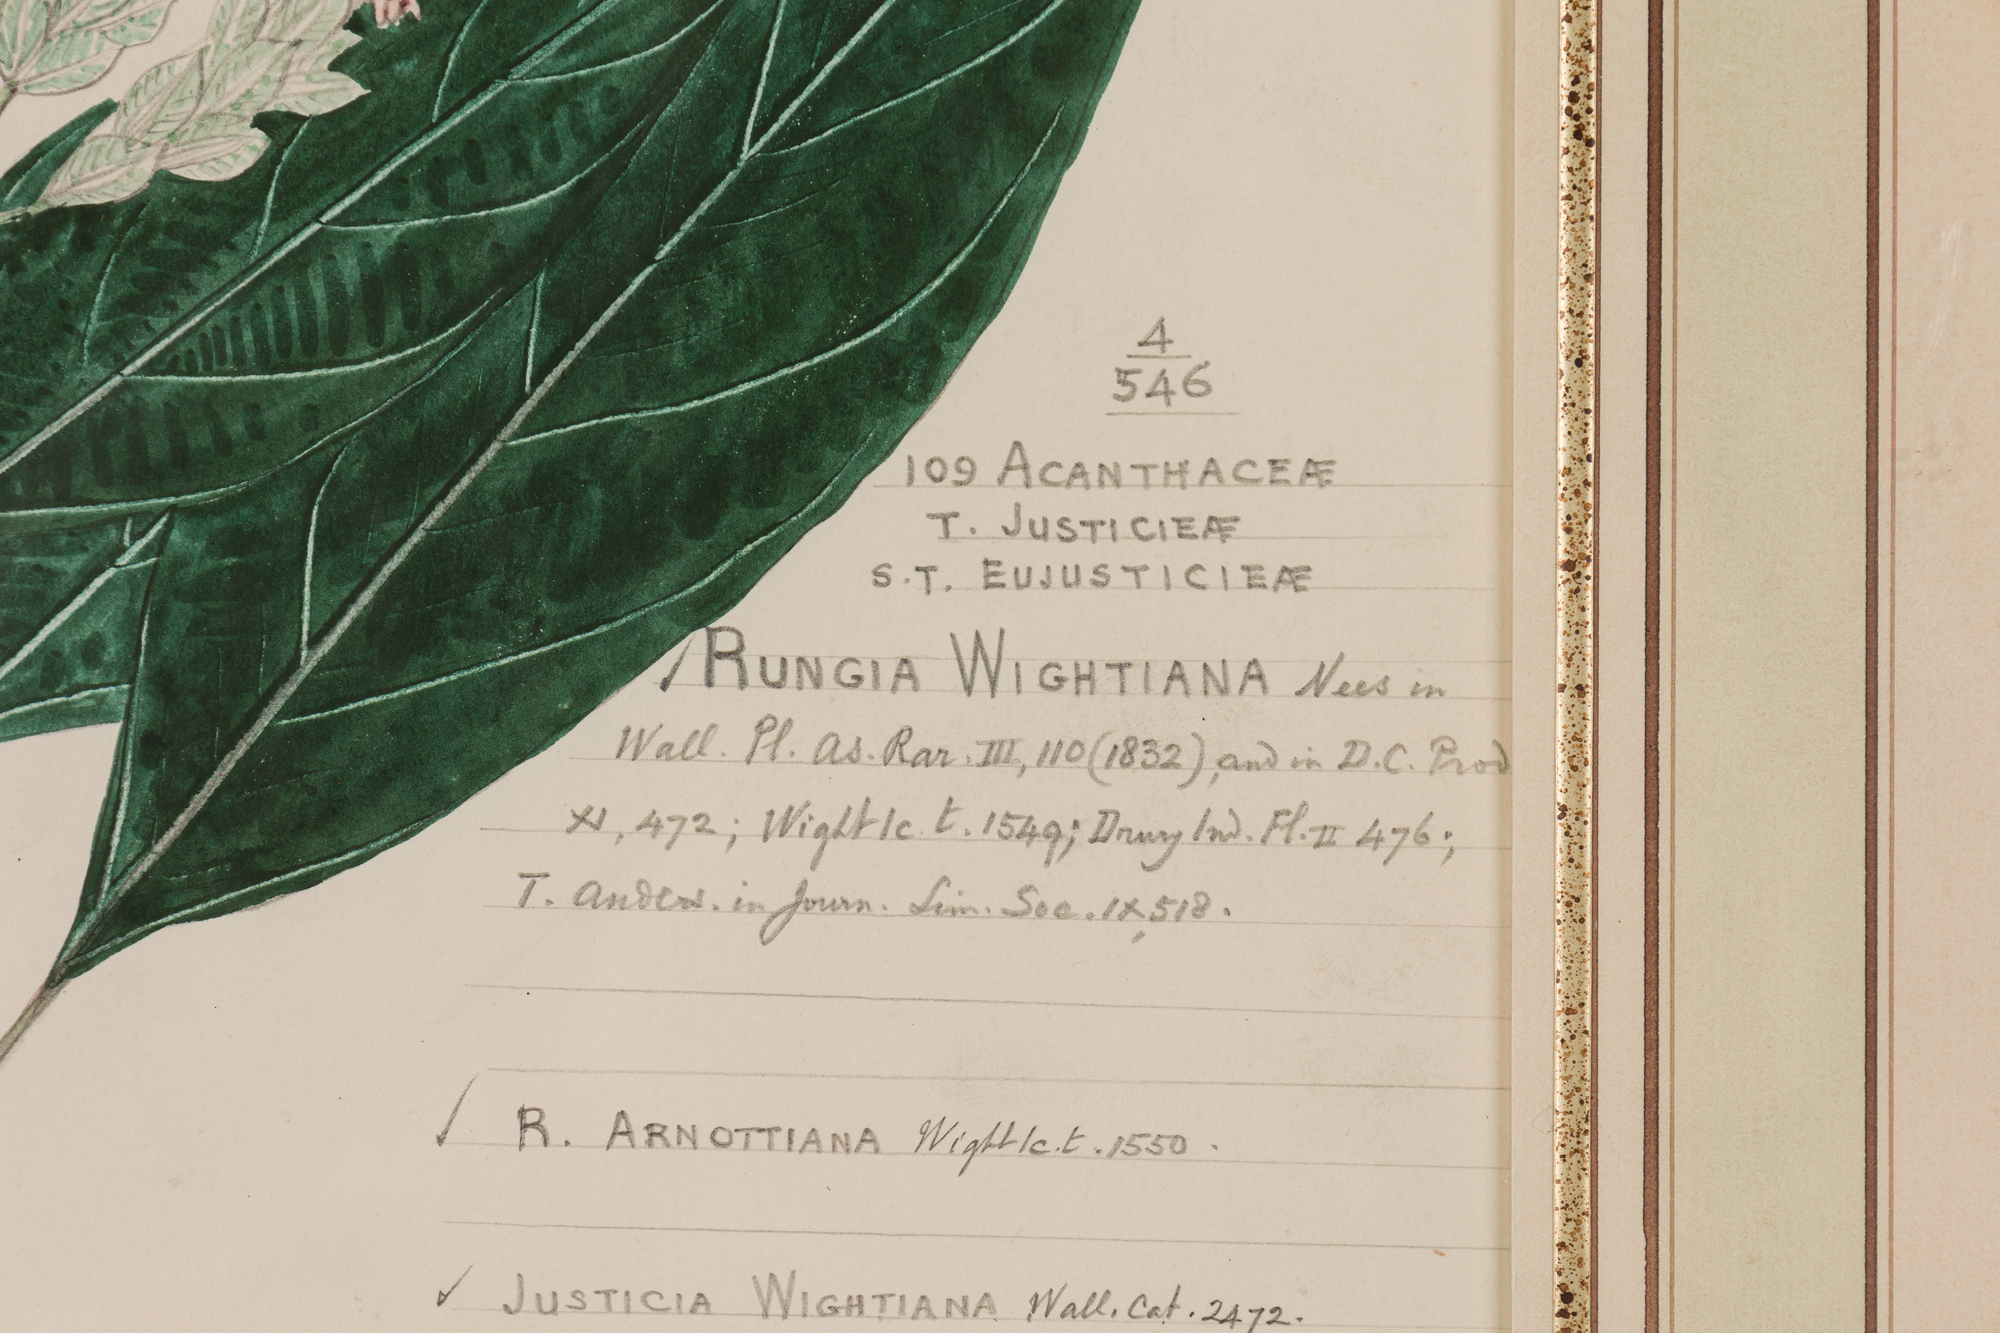 4
546
109 ACANTHACEÆ
T. JUSTICIEÆ
S.T. EUJUSTICIEÆ
RUNGIA WIGHTIANA Nees in
Wall. Pl. As. Rar. III, 110 (1832), and in D.C. Prod
XI, 472; Wight Ic. t. 1549; Drury Ind. Fl. II 476;
T. Anders. in Journ. Linn. Soc. IX, 518.
R. ARNOTTIANA Wight Ic. t. 1550.
JUSTICIA WIGHTIANA Wall. Cat. 2472.